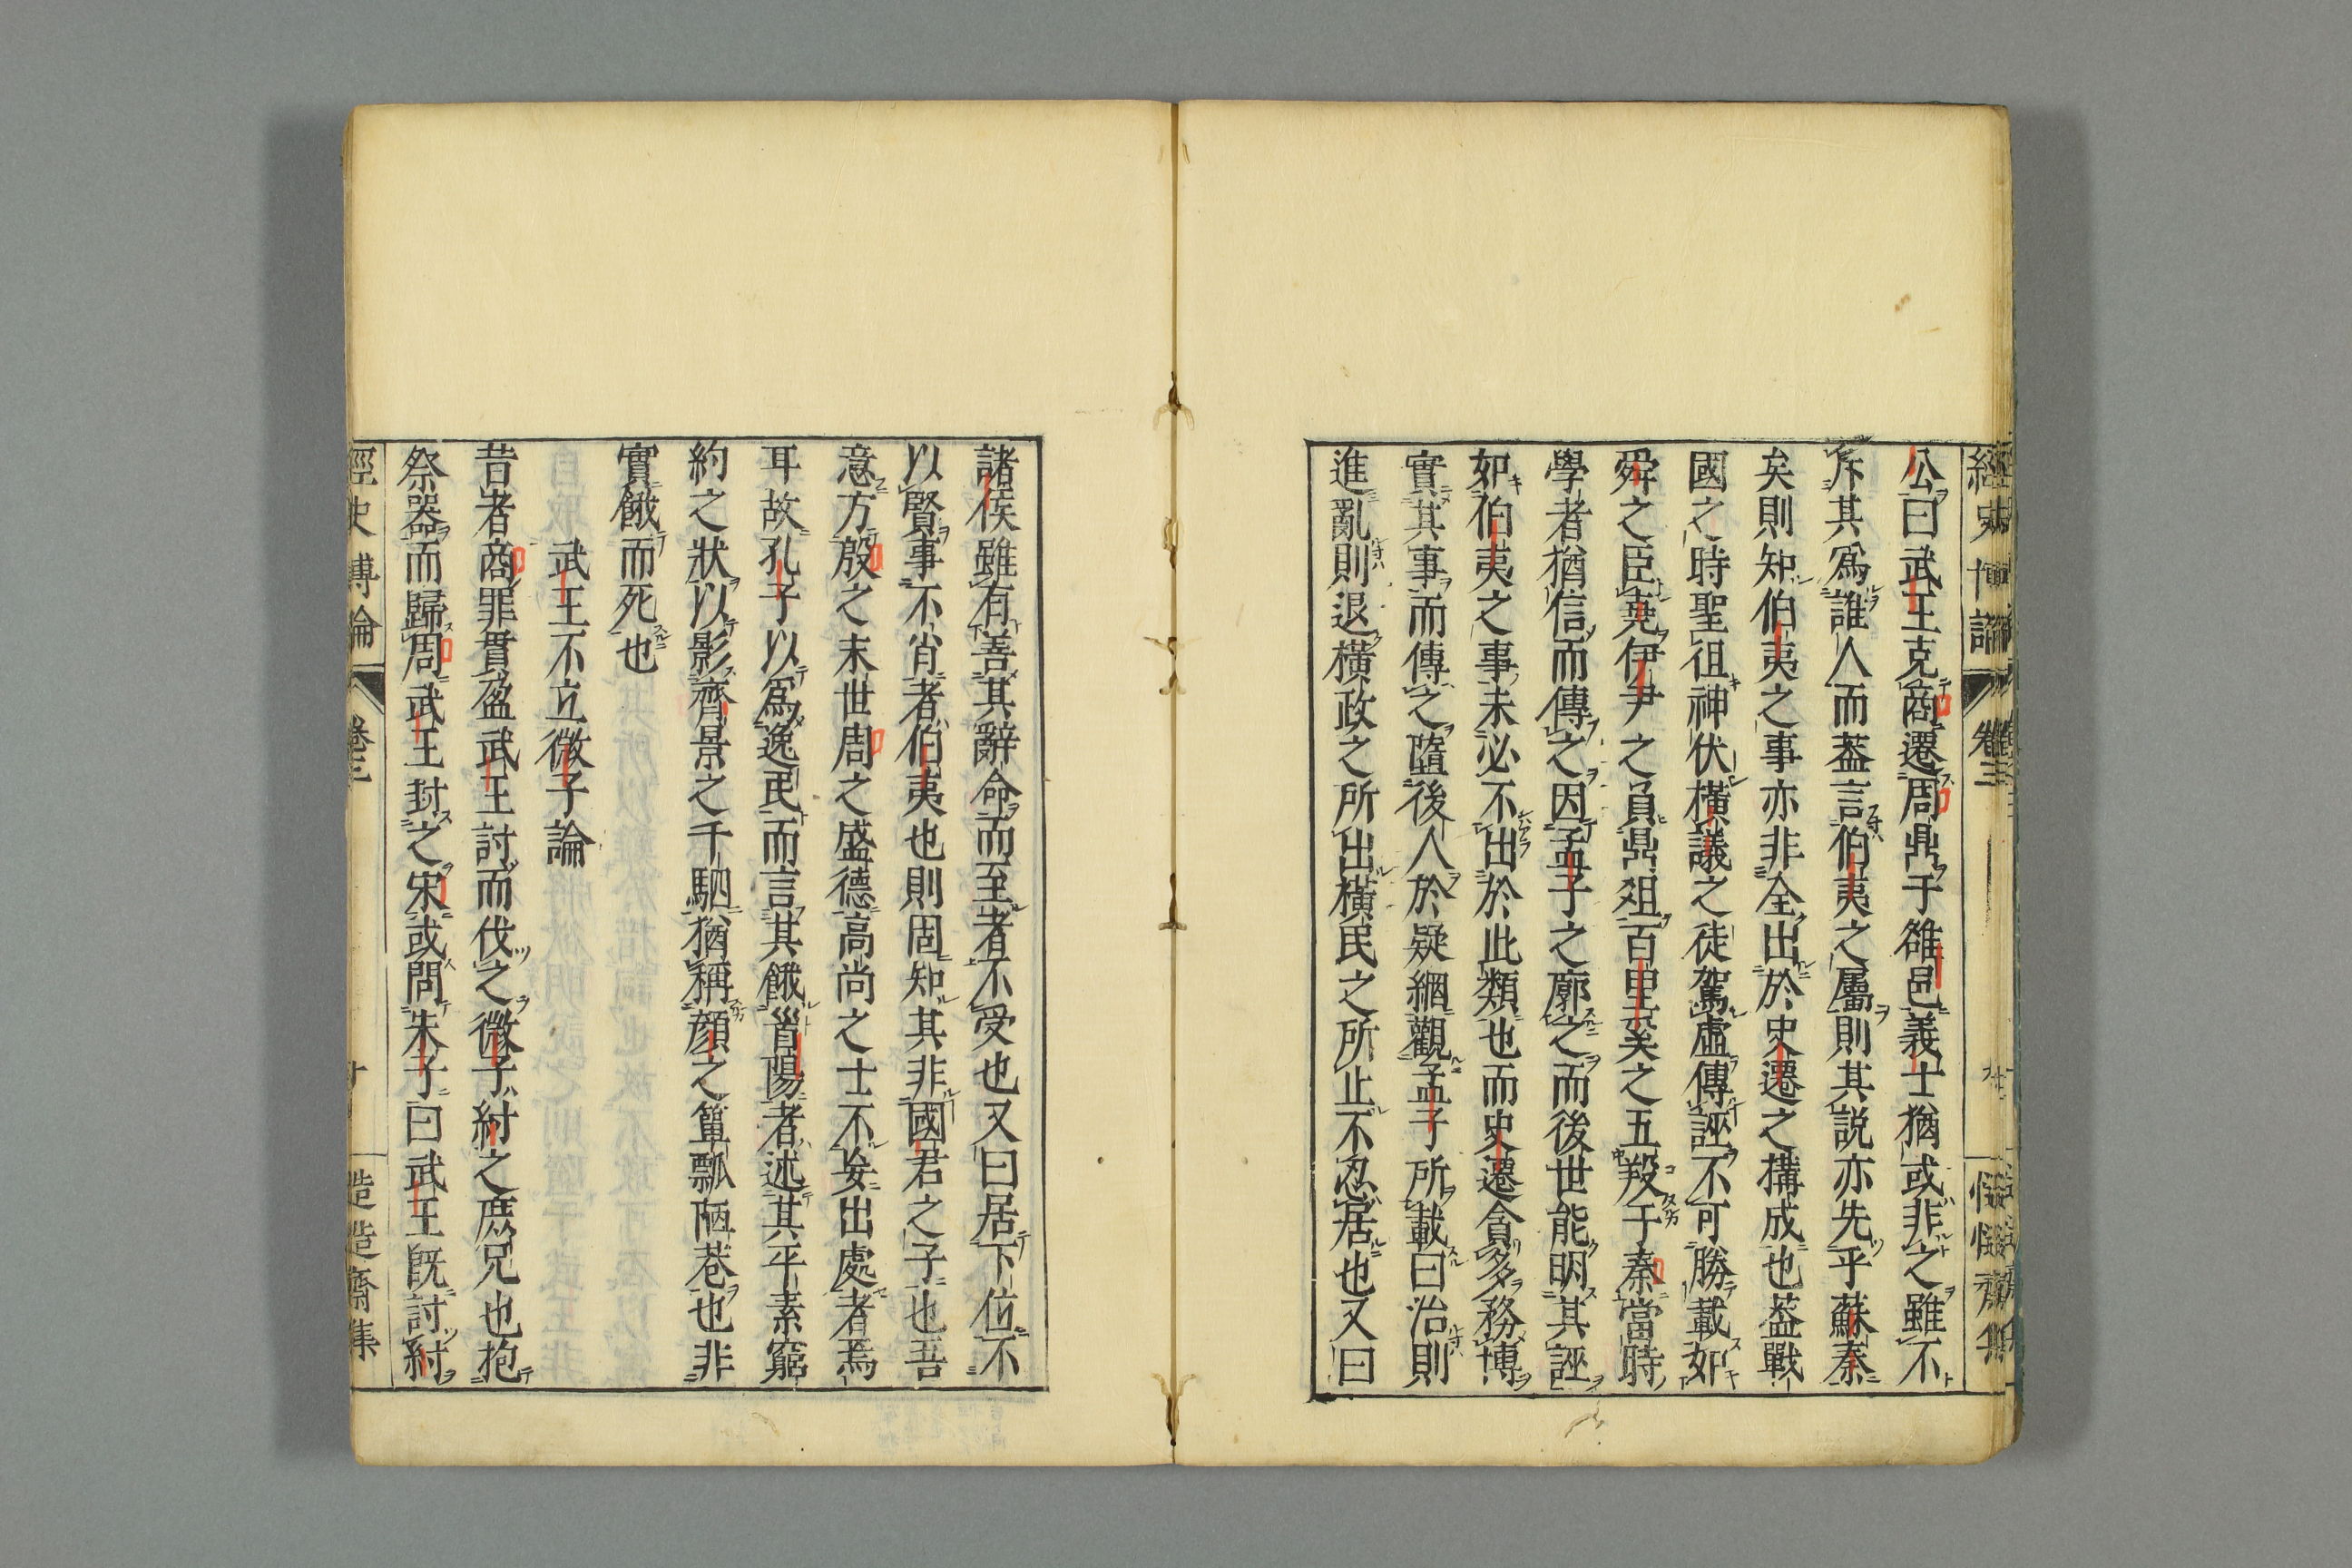 經史博論
卷三
公曰武王克商遷周鼎于雒邑義士猶或非之雖不
斥其爲誰人而葢言伯夷之屬則其説亦先乎蘇秦
矣則知伯夷之事亦非全出於史遷之構成也葢戰
國之時聖徂神伏横議之徒駕虛傳誣不可勝載如
舜之臣堯伊尹之負鼎俎百里奚之五羖于秦當時
學者猶信而傳之因孟子之廓之而後世能明其誣
如伯夷之事未必不出於此類也而史遷貪多務博
實其事而傳之墮後人於疑網觀孟子所載曰治則
進亂則退横政之所出横民之所止不忍居也又曰
諸侯雖有善其辭命而至者不受也又曰居下位不
以賢事不肖者伯夷也則固知其非國君之子也吾
意方殷之末世周之盛德高尚之士不妄出處者焉
耳故孔子以爲逸民而言其餓首陽者述其平素窮
約之狀以影齊景之千駟猶稱顏之簞瓢陋巷也非
實餓而死也
武王不立微子論
昔者商罪貫盈武王討而伐之微子紂之庶兄也抱
祭器而歸周武王封之宋或問朱子曰武王既討紂
經史博論
卷三
造造齋集